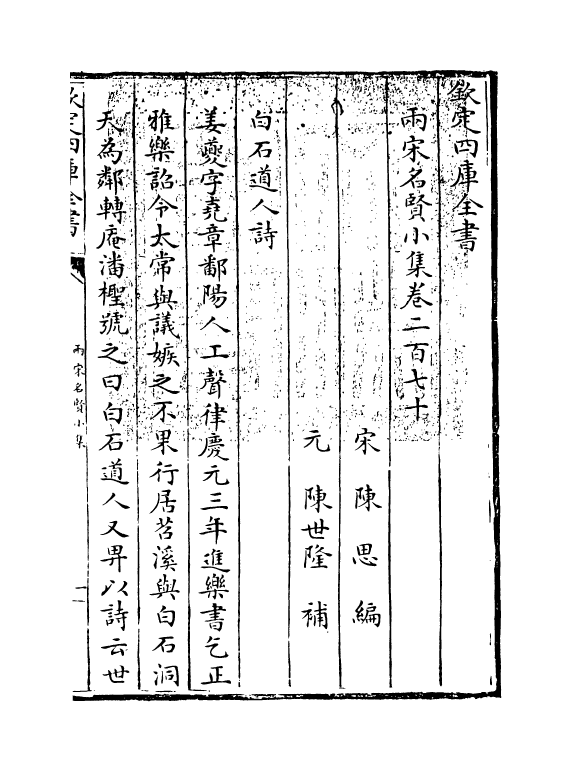 欽定四庫全書
兩宋名賢小集卷二百七十
宋 陳思 編
元 陳世隆 補
白石道人詩
姜夔字堯章鄱陽人工聲律慶元三年進樂書乞正
雅樂詔令太常與議嫉之不果行居苕溪與白石洞
天為鄰轉庵潘檉號之曰白石道人又畀以詩云世
欽定四庫全書
兩宋名賢小集
一